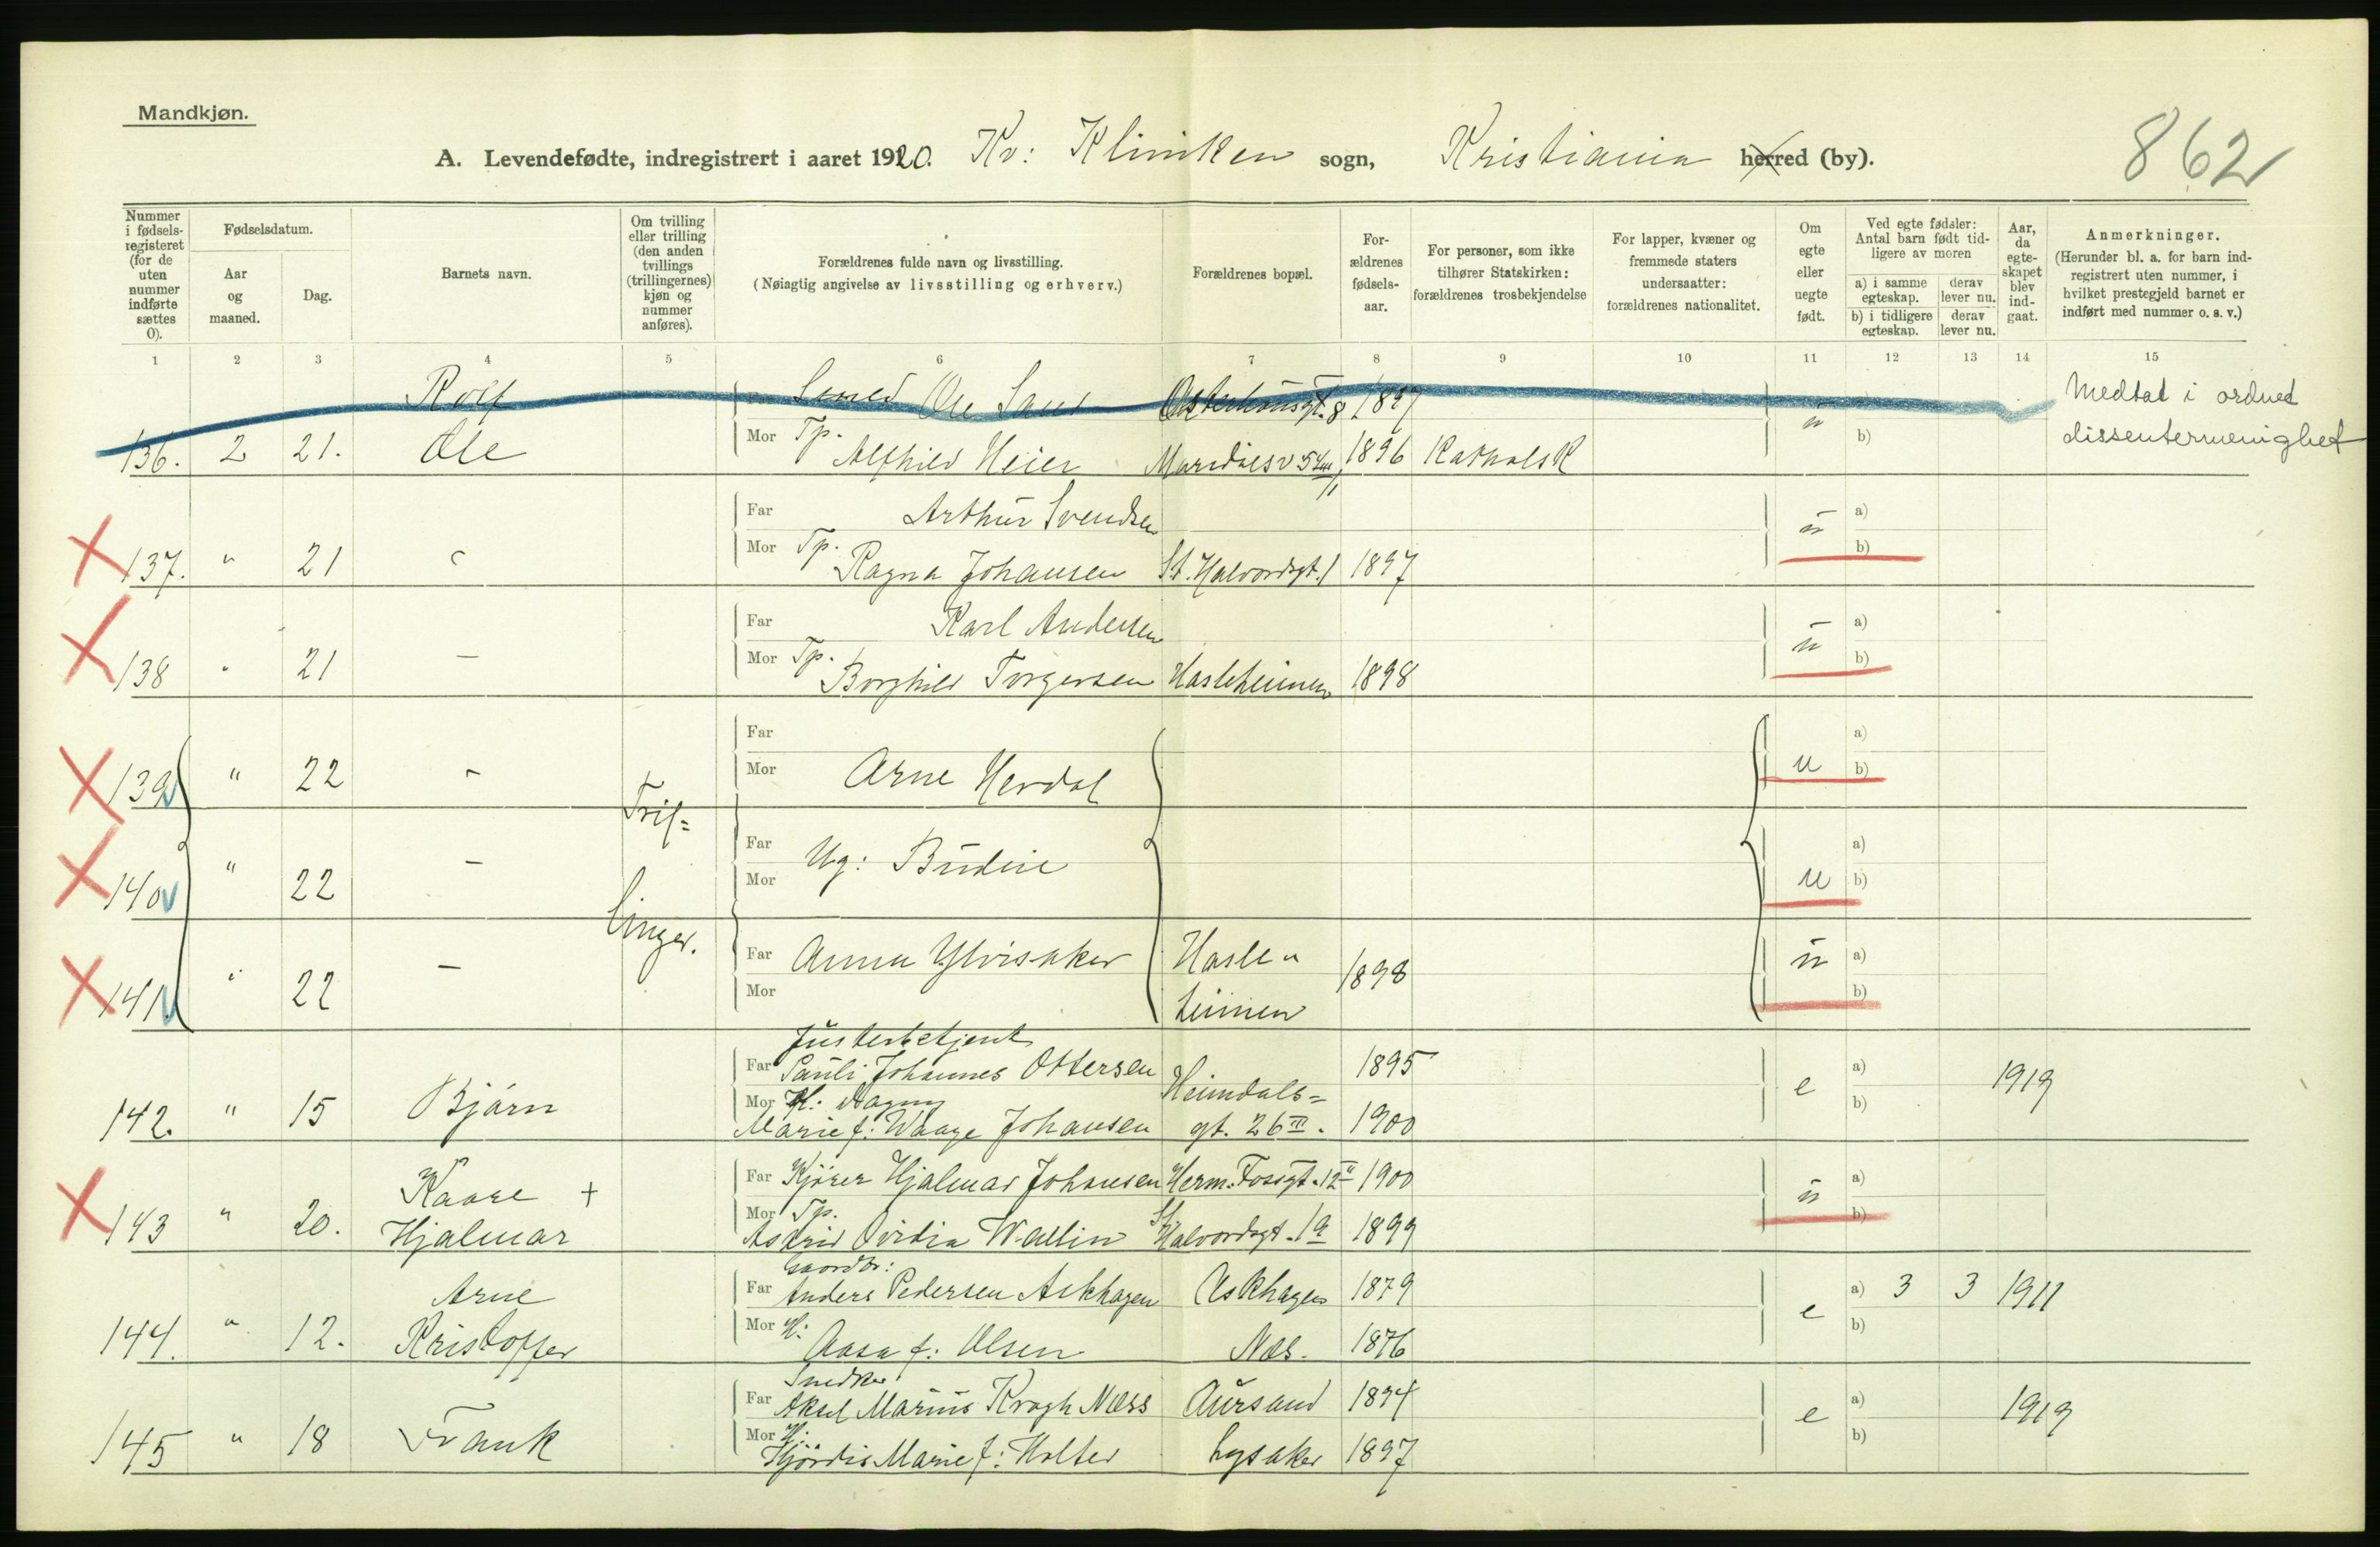 Mandkjøn.
A. Levendefødte, indregistrert i aaret 1920. Kv: Kliniken sogn, Kristiania herred (by).
862
Nummer i fødsels-registeret (for de uten nummer indførte sættes 0).
Fødselsdatum.
Aar og maaned.
Dag.
Barnets navn.
Om tvilling eller trilling (den anden tvillings (trillingernes) kjøn og nummer anføres).
Forældrenes fulde navn og livsstilling.
(Nøiagtig angivelse av livsstilling og erhverv.)
Forældrenes bopæl.
For-ældrenes fødsels-aar.
For personer, som ikke tilhører Statskirken: forældrenes trosbekjendelse
For lapper, kvæner og fremmede staters undersaatter: forældrenes nationalitet.
Om egte eller uegte født.
Ved egte fødsler: Antal barn født tid-ligere av moren
a) i samme egteskap. derav lever nu.
b) i tidligere egteskap. derav lever nu.
Aar, da egte-skapet blev ind-gaat.
Anmerkninger.
(Herunder bl. a. for barn ind-registrert uten nummer, i hvilket prestegjeld barnet er indført med nummer o. s. v.)
1 2 3 4 5 6 7 8 9 10 11 12 13 14 15
Rolf Ole 1897 Medtat i ordnet
136. 2 21. Ole Mor Tp. Alfhild Heier 1896 Katholsk u b) dissentermenighet
Far Arthur Svendsen a)
137. " 21 Mor Tp. Ragna Johansen St. Halvordsgt. 1 1897 u b)
Far Karl Andersen a)
138 " 21 — Mor Tp. Borghild Torgersen Hasleheimen 1898 u b)
Far a)
139 " 22 - Tril= Mor Arne Herdal u b)
Far Ug: a)
140 " 22 - Mor u b)
linger. Far Anna Ylvisaker Hasle u a)
141 " 22 - Mor heimen 1898 b)
Justerbetjent
Far Pauli Johannes Ottersen Heimdals= 1895 a) 1919
142. " 15 Bjørn Mor H: Dagny e b)
Marie f: Waage Johansen gt. 26 III. 1900
Kaare + Far Kjører Hjalmar Johansen Herm. Fossgt. 12 II 1900 a)
143 " 20. Hjalmar Mor Tp. Astrid Ovidia Wallin St Halvordsgt. 1a 1899 u b)
Gaardbr:
Arne Far Anders Pedersen Askhagen Askhagen 1879 a) 3 3 1911
144. " 12. Kristoffer Mor H: Aasa f: Olsen Næs. 1876 e b)
Snedker
Far Aksel Marius Krogh Næss Aursand 1894 a) 1919
145 " 18 Frank Mor H: Hjørdis Marie f: Holter Lysaker 1897 e b)